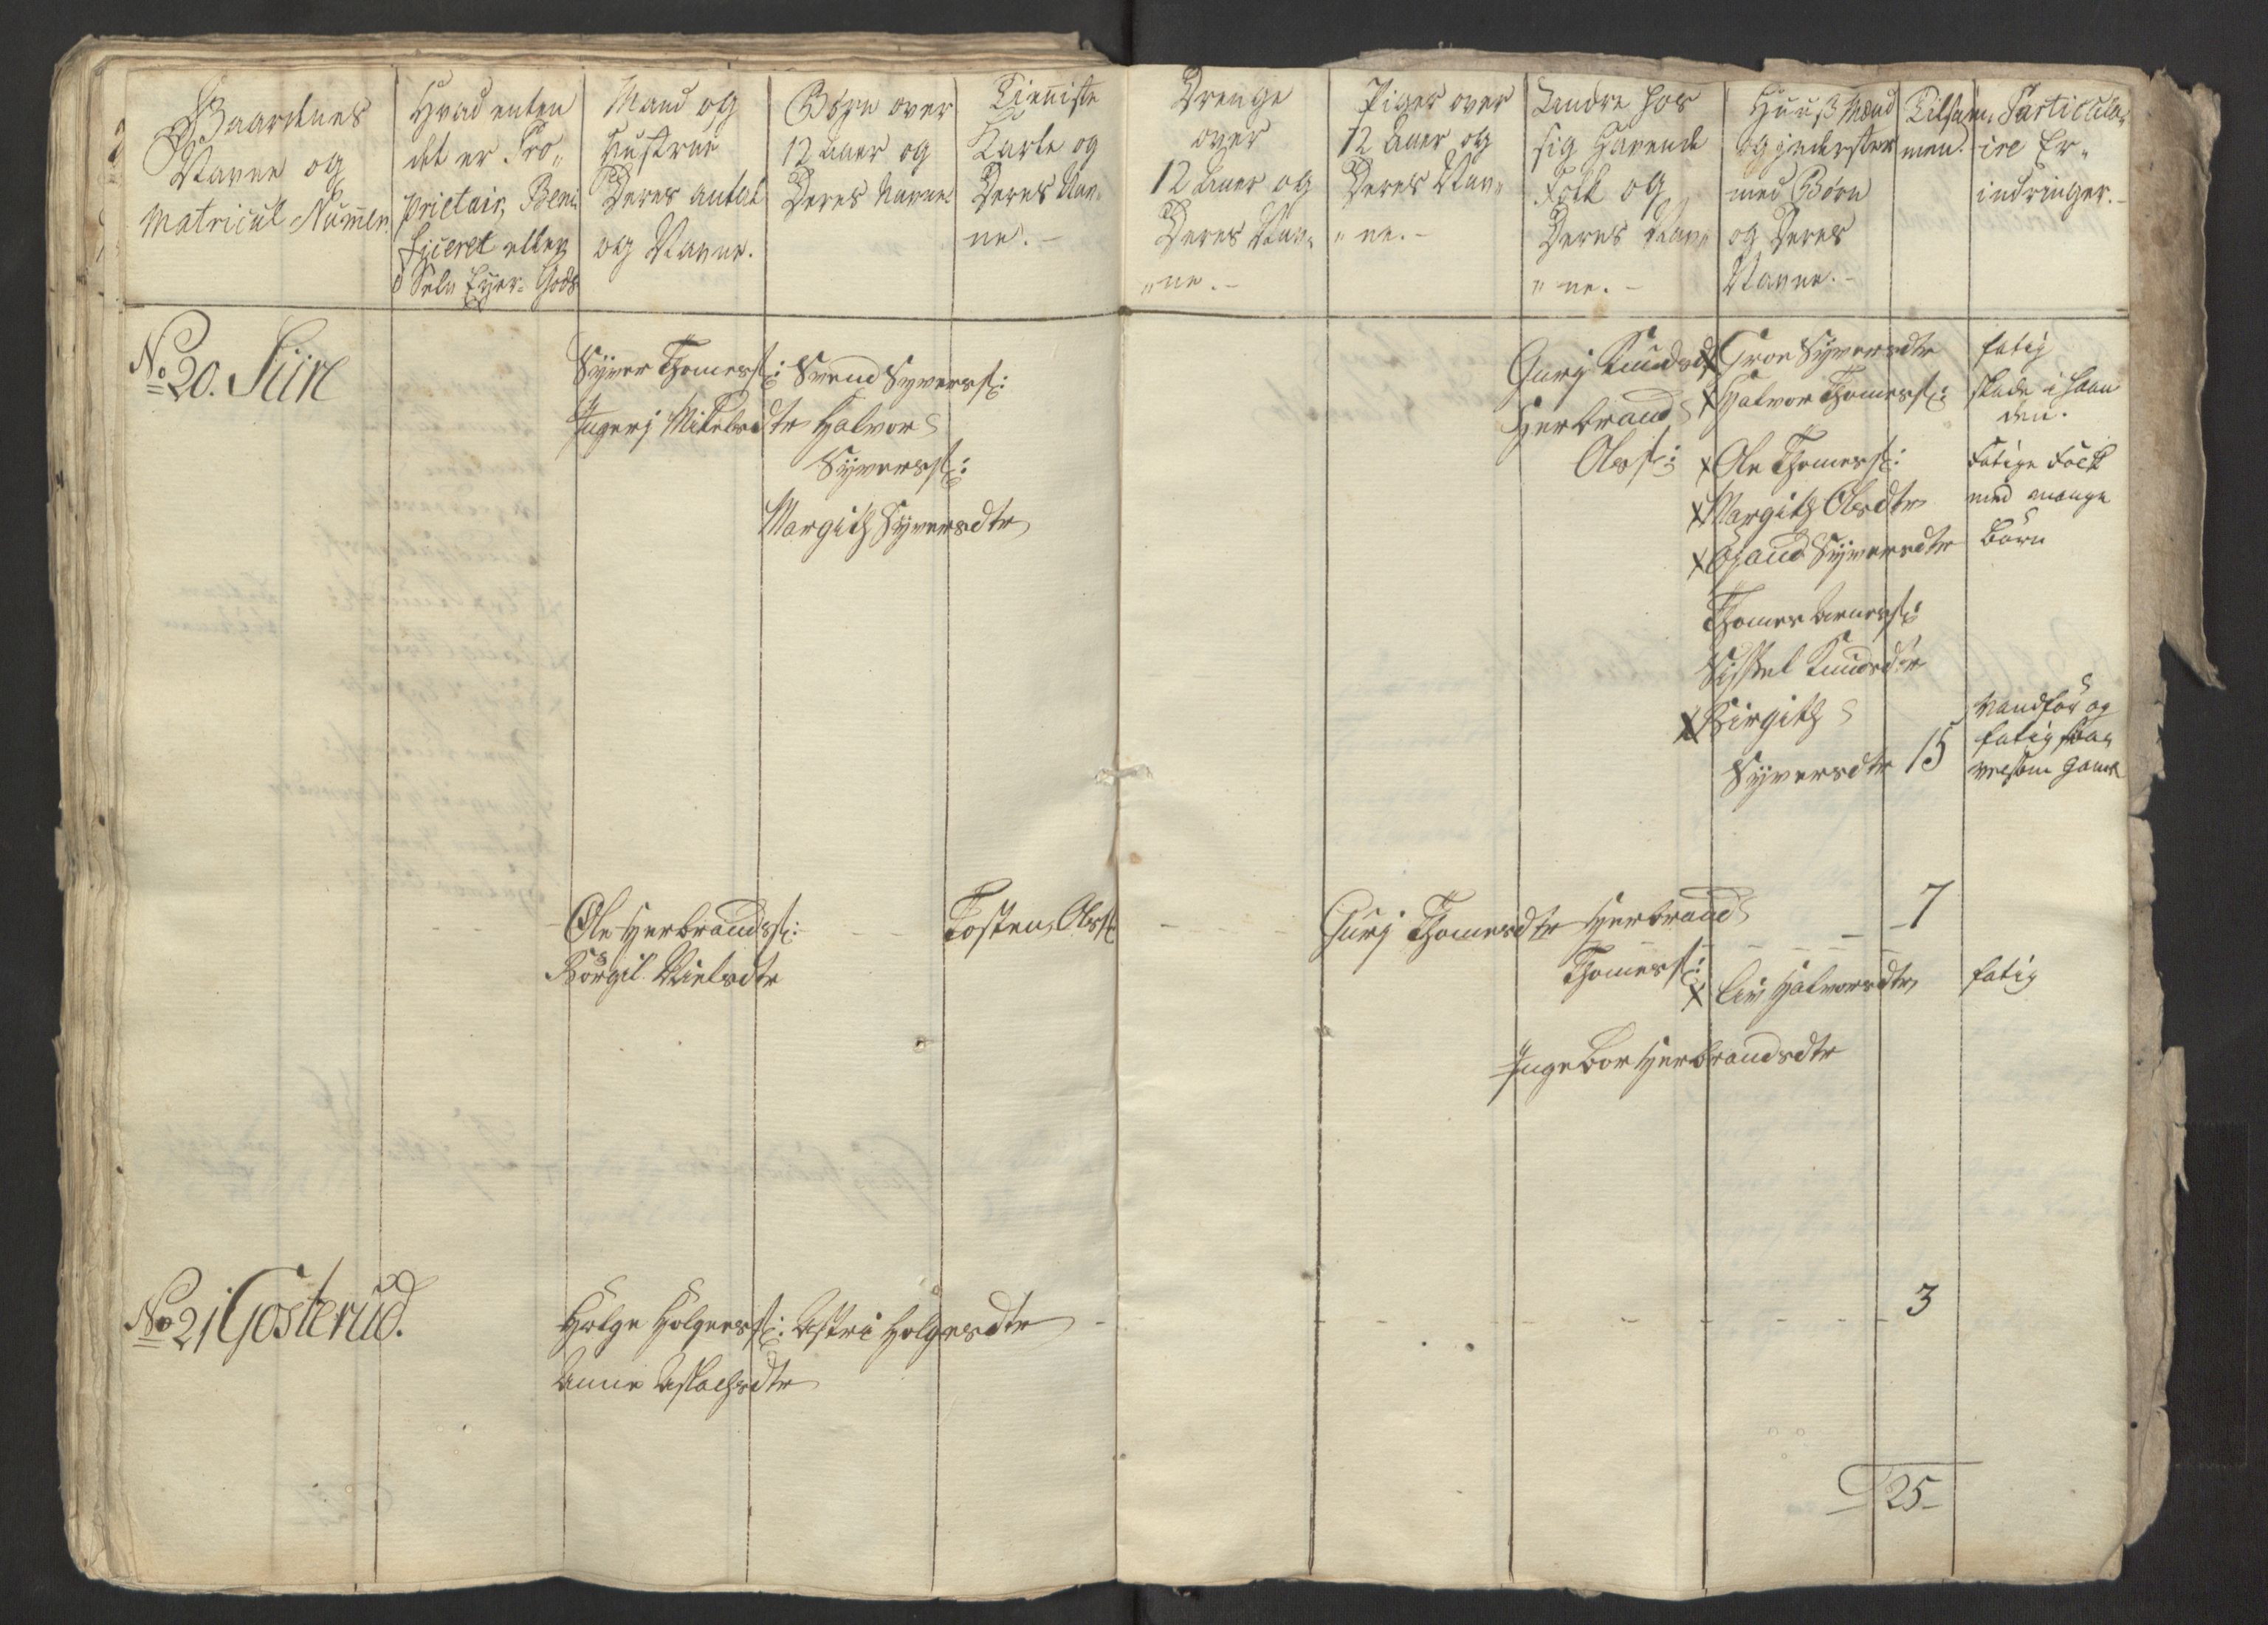 Gaardenes
Navne og
Matricul Numer.
Hvad enten
det er Pro„
prietair, Beni
ficeret eller
Selv Eyer-Gods
Mand og
Hustrue
Deres antal
og Navne.
Børn over
12 Aar og
Deres Navne
Tieniste
Karle og
Deres Nav„
ne.-
Drenge
over
12 Aar og
Deres Nav„
„ne.-
Piger over
12 Aar og
Deres Nav„
„ne.-
Andre hos
sig havende
Folk og
Deres Nav„
„ne.-
Huusmænd
og inderster
med Børn
og Deres
Navne.-
Tilsam„
men.
Particula„
ire Er„
indringer.-
No 20. Siire
Syver Thomess:
Ingerj Mikelsdtr
Svend Syverss:
Halvor
Syverss:
Margith Syversdtr
Gurj Knudsd
Herbrand
Olss:
x Groe Syversdtr
x Halvor Thomess:
x Ole Thomess:
x Margith Olsdtr
x Øgaud Syversdtr
Thomes Arness:
Sissel Knudsdtr
x Birgith
Syversdtr
15
fatig
skade i haan
den.
Fatige Folk
med mange
Børn
vandför og
fatig saa
velsom gamel
Ole Herbrandss:
Börgil Nielsdtr
Tosten Olss:
Gurj Thomesdtr
Herbrand
Thomess:
Ingebor Herbrandsdtr
x Liv Halvorsdtr
7
fatig
No 21 Gosterud.
Holge Holgerss:
Anne Aslachsdtr
Astri Holgesdtr
3
25-